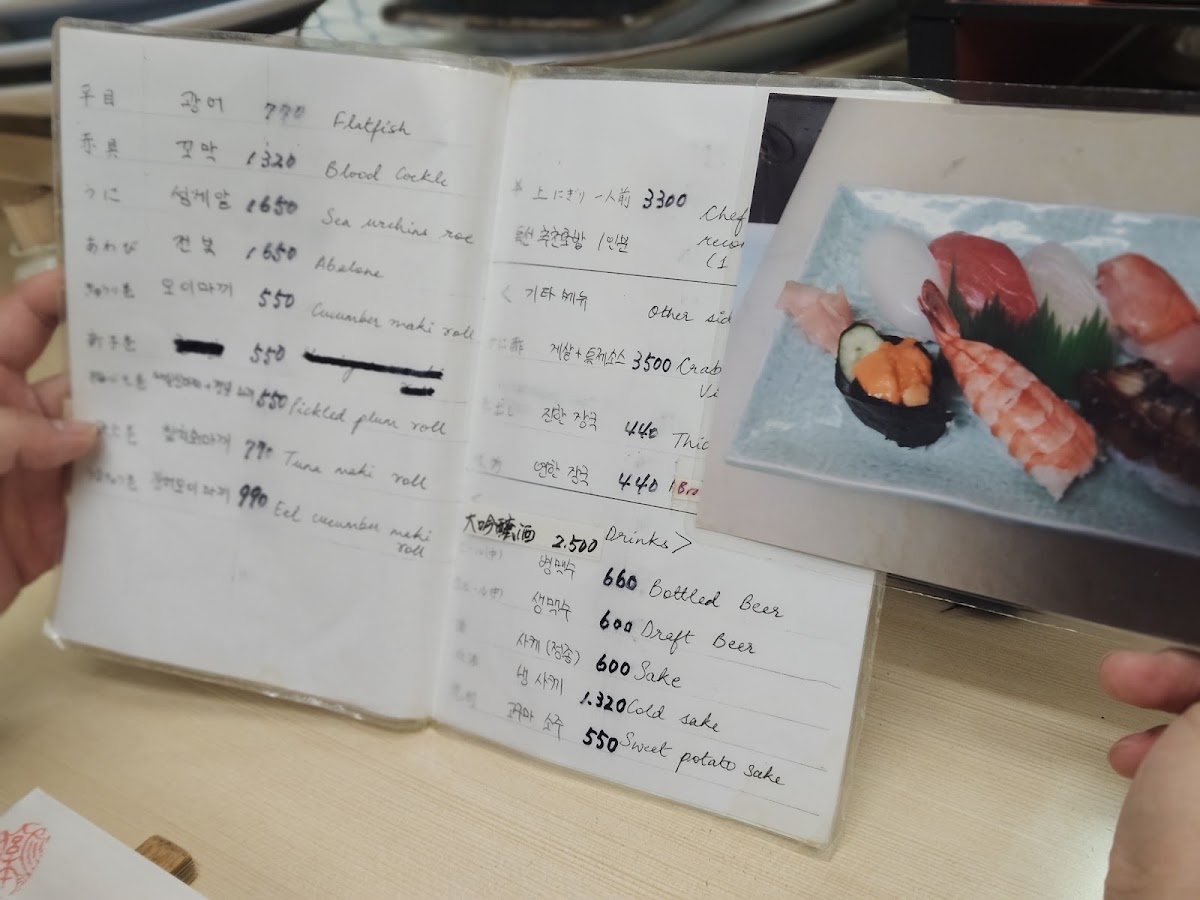 平目 광어 770 Flatfish
赤貝 꼬막 1320 Blood Cockle
うに 성게알 1650 Sea urchins roe
あわび 전복 1650 Abalone
오이마끼 550 Cucumber maki roll
550
550 Pickled plum roll
참치회마끼 770 Tuna maki roll
장어오이마끼 990 Eel cucumber maki
roll
* 上にぎり 一人前 3300 Chef
추천초밥 1인분 reco
(1
< 기타 메뉴 Other sid
게살+특제소스 3500 Crab
Vi
진한 장국 440 Thic
연한 장국 440 Bro
大吟醸酒 2.500 Drinks>
병맥수 660 Bottled Beer
생맥수 600 Draft Beer
사케(정종) 600 Sake
냉 사케 1.320 Cold sake
고구마 소주 550 Sweet potato sake